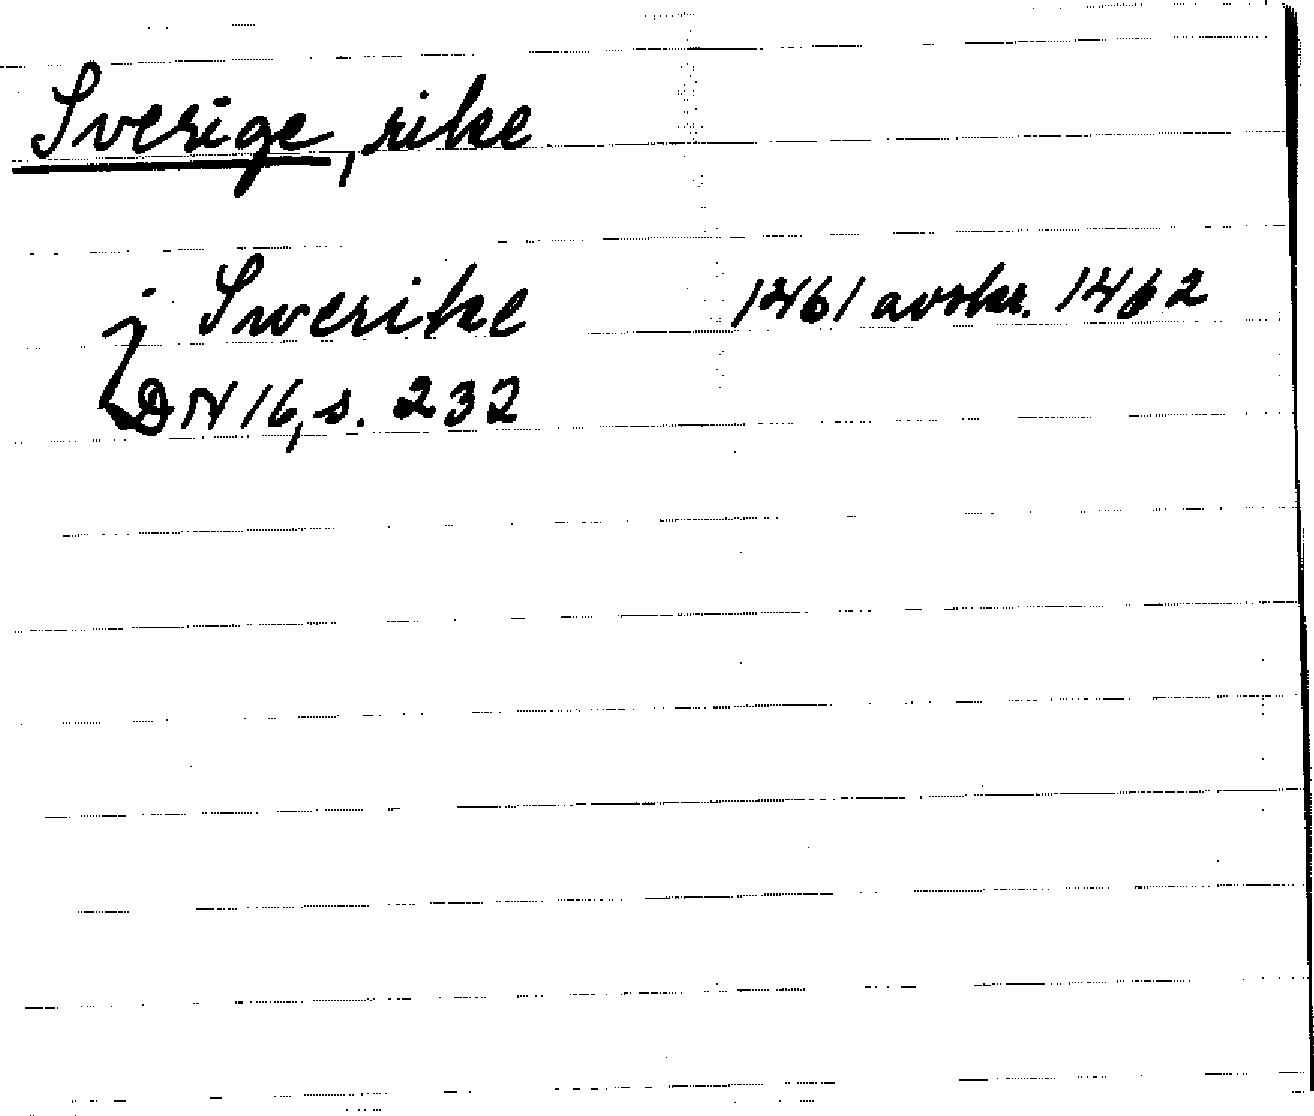 Sverige, rike
j Swerike 1461 avskr. 1462
DN 16, s. 232